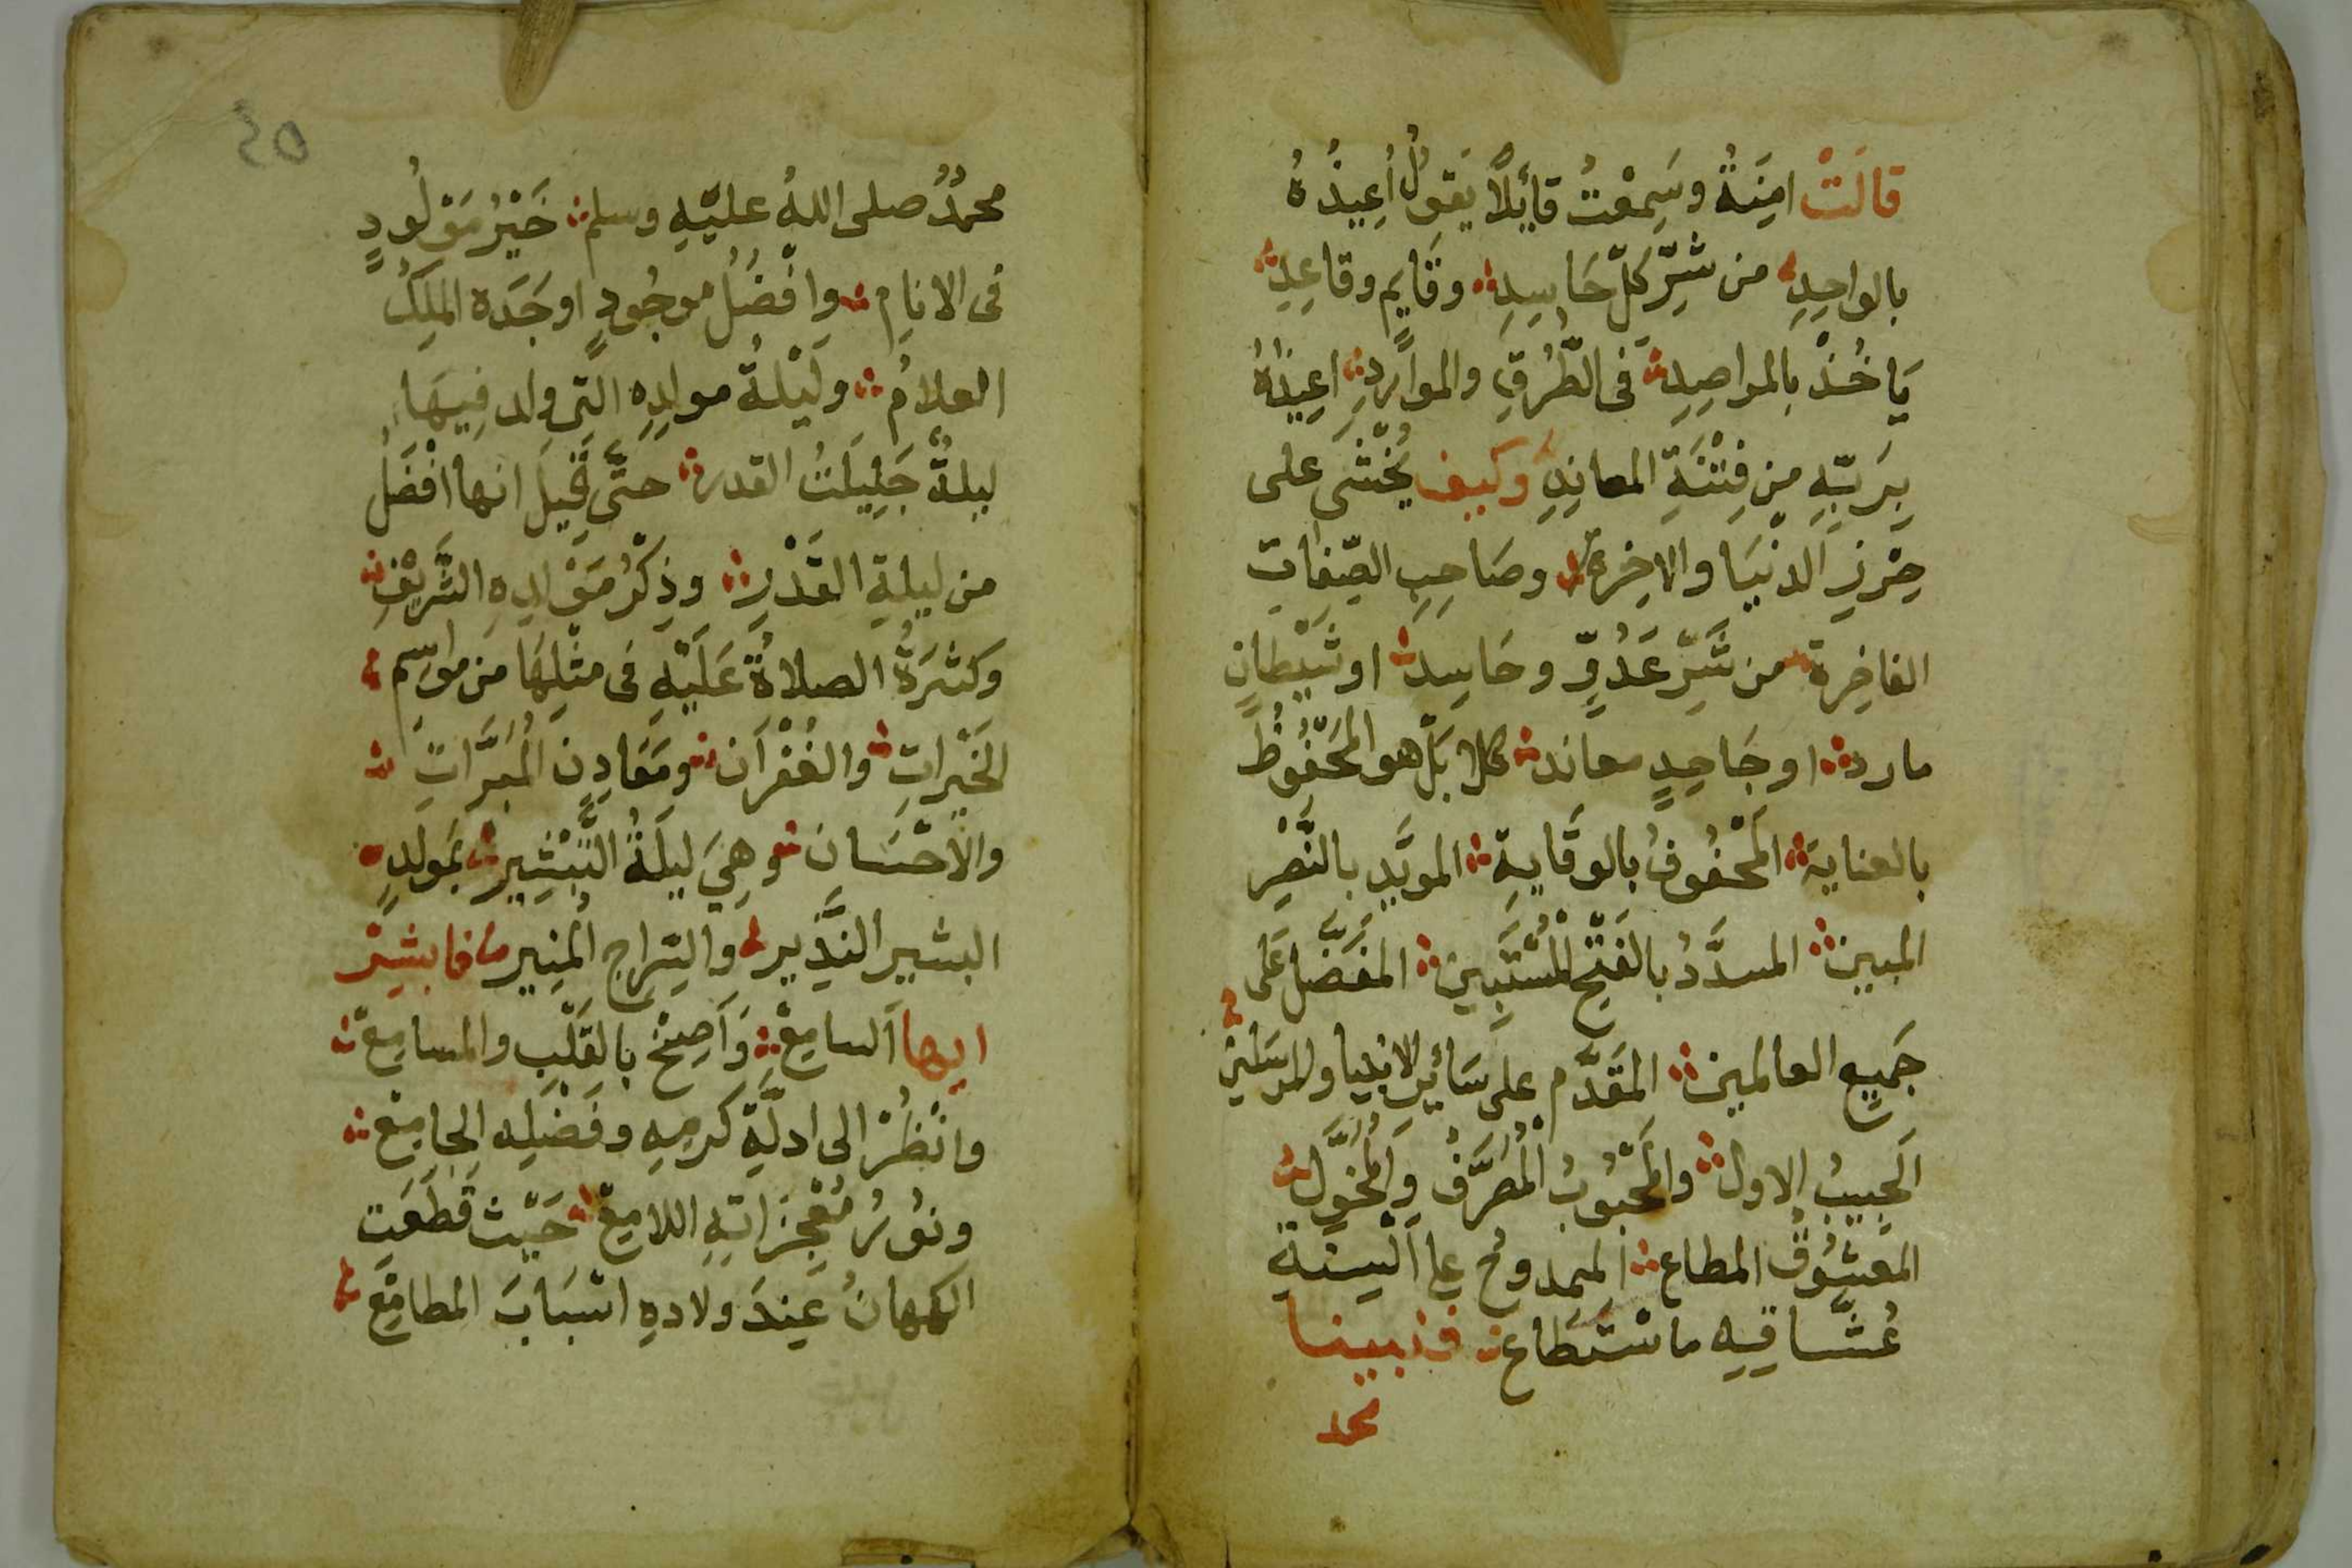 قالَتْ امِنَةُ وسَمِعْتُ قائلاً يقولُ اُعِيذُهُ
بالواحِدِ من شرِّ كلّ حَاسِدِ وقَايِم وقاعِدِ
يَاخُذْ بالمراصِدِ فى الطُّرُقِ والموارِدِ اعِيذهُ
بِرَبّهِ مِن فِتْنَةِ المعانِدِ وكيف يُخْشَى على
حِرْزِ الدنْيَا والاخِرة وصَاحِبِ الصِّفات
الفاخِرة من شَرِّ عَدُوٍّ وحَاسِد او شَيْطانٍ
مارد او جَاحِدٍ معاند كلا بَلْ هو المَحْفُوظُ
بالعناية المَحْفُوفُ بالوقَايةِ المويَّد بالنَّصْرِ
المبين المسدَّدُ بالفَتْحِ المُسْتَبِين المفضّل عَلَى
جَمِيعِ العالمين المقَدَّم على سَائِرِ الانبيا والمرسَلين
الحَبِيبُ الاول والمَحْبُوبُ المُصَرَّفْ والمُخوَّل
المعْشُوقُ المطاع الممدوحُ على اَلْسِنَةِ
عُشَّاقِهِ ما سْتَطَاع فنبينا
محمد
٤٥
محمدٌ صلى اللهُ عليْهِ وسلم خَيْرُ مَوْلُودٍ
فى الانامِ وافْضَلُ موجُودٍ اوجَدَه المَلِكُ
العلامُ ولَيْلةُ مولِدِهِ التى ولد فِيهَا
ليلةٌ جَلِيلَتُ القدر حتَّى قِيلَ انها افْضَلُ
من ليلةِ القَدْرِ وذِكْرُ مَوْلِدِهِ الشَّرِيْفِ
وكثرَةُ الصلاةُ عَلَيْهِ فى مثْلِهَا من مواسِم
الخَيْراتِ والغُفْرَان ومَعَادِن المُبَرَّاتِ
والاحْسَان وهِيَ ليلَةُ التَّبْشِير بمَولِدِ
البشير النَّذِير والسِّراج المُنِير فابشِرْ
ايها السامِعْ وَاَصِخْ بالقَلْبِ والمسامِعْ
وانْظُرْ الى ادلَّةِ كرمِهِ وفَضْلِهِ الجامِعْ
ونُورُ مُعْجِزَاتِهِ اللامِعْ حَيْث قَطَعَت
الكهانُ عِندَ ولادهِ اسْبَابَ المطامِعْ